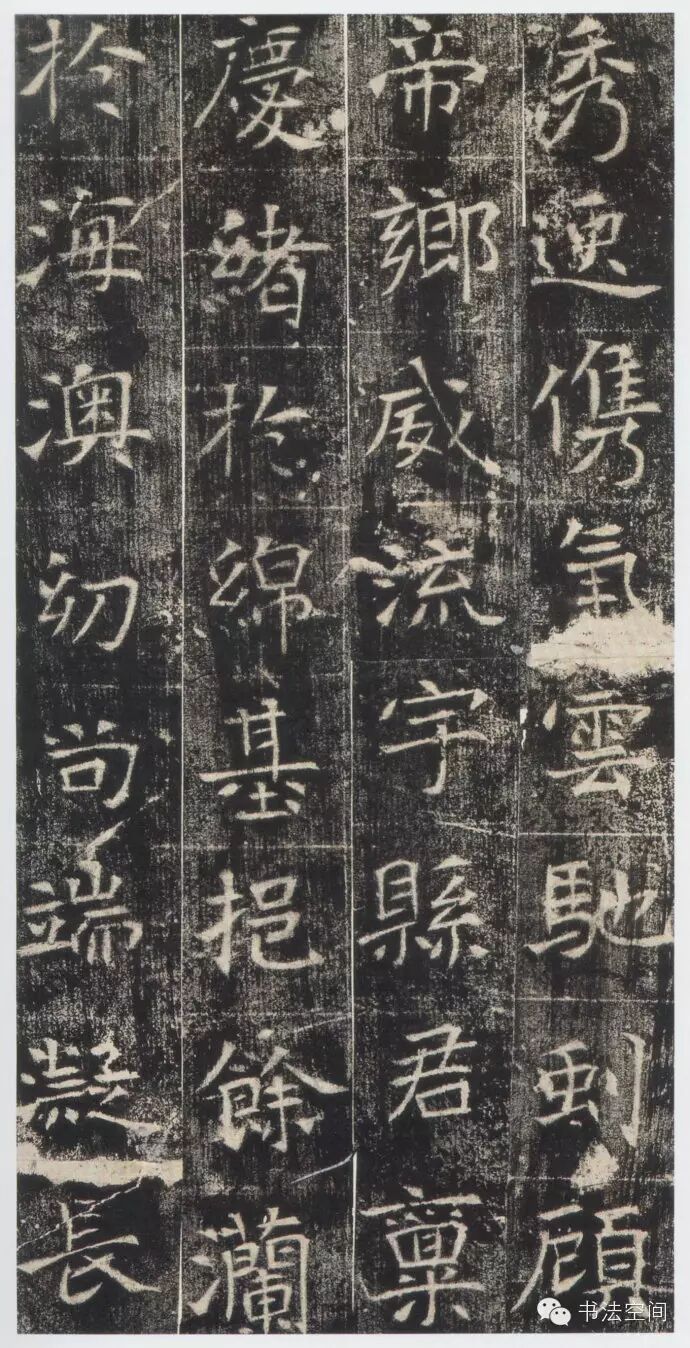 秀儁氣雲馳顧
帝鄉威流宇縣君稟
慶緒於綿基挹餘瀾
於海澳幼尚端凝長
书法空间